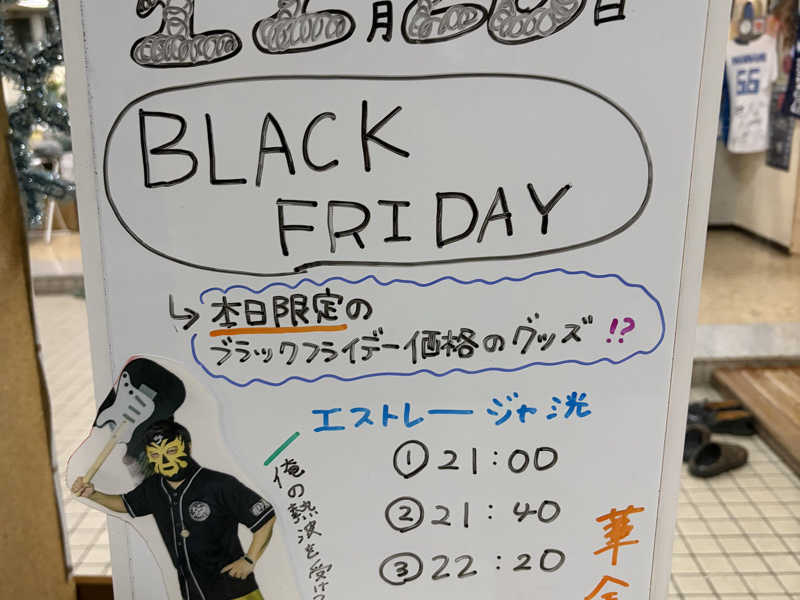 11月25日
BLACK
FRIDAY
本日限定の
ブラックフライデー価格のグッズ!?
エストレージャ洸
①21:00
②21:40
③22:20
俺の熱波を受け
華金
55